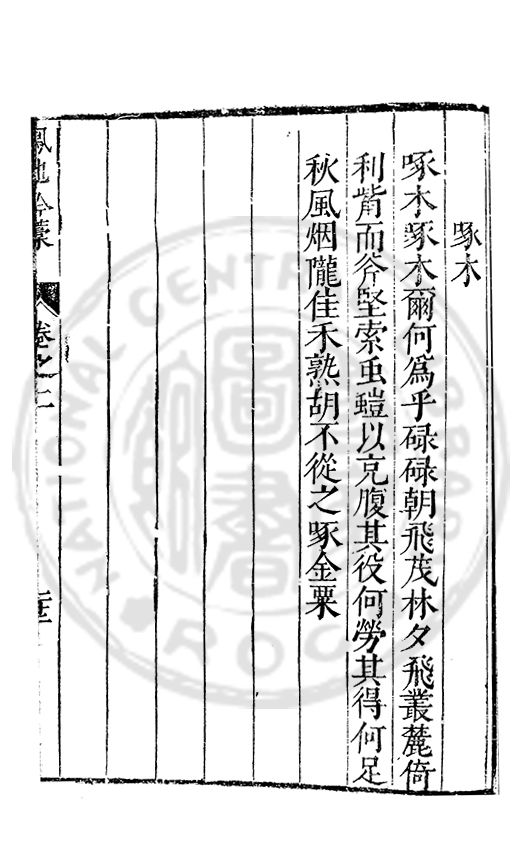 啄木
啄木啄木爾何爲乎碌碌朝飛茂林夕飛叢麓倚
利觜而斧堅索虫螘以充腹其役何勞其得何足
秋風烟隴佳禾熟胡不從之啄金粟
卷之二
NATIONAL CENTRAL LIBRARY
圖書